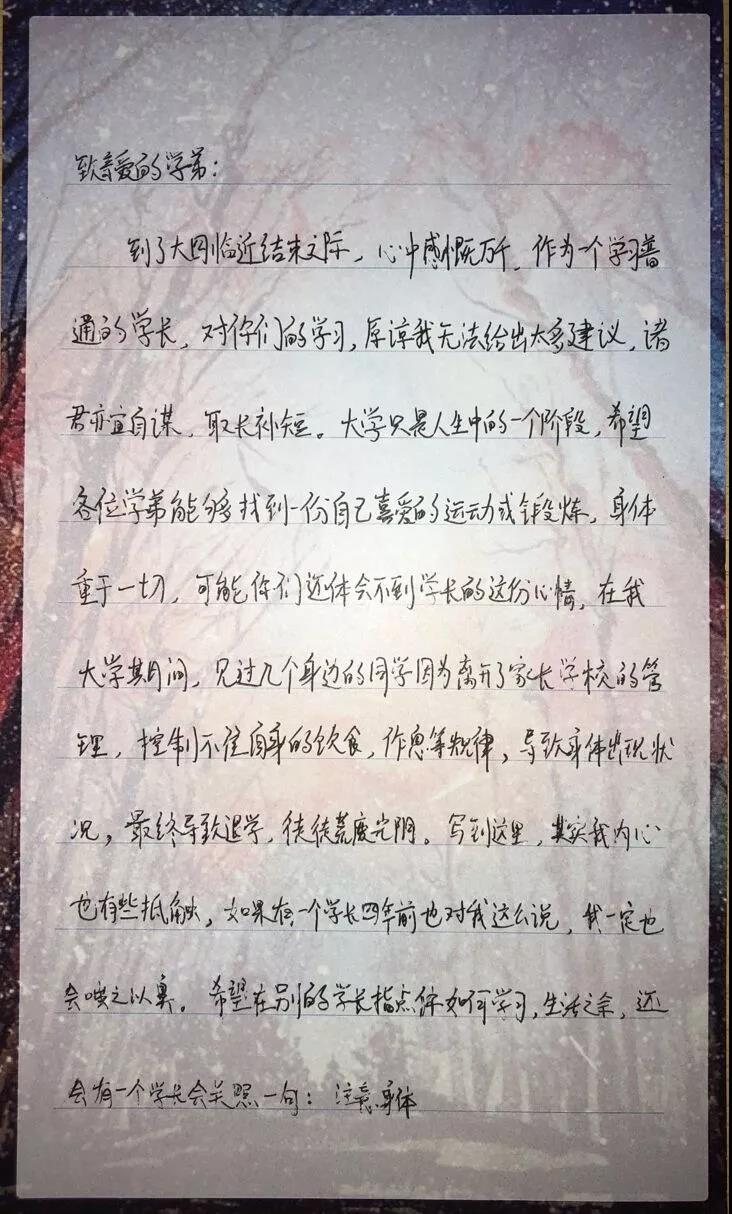 致亲爱的学弟：
到了大四临近结束之际，心中感慨万千，作为一个学习普
通的学长，对你们的学习，原谅我无法给出太多建议，诸
君亦宜自谋，取长补短。大学只是人生中的一个阶段，希望
各位学弟能够找到一份自己喜爱的运动或锻炼，身体
重于一切，可能你们还体会不到学长的这份心情，在我
大学期间，见过几个身边的同学因为离开了家长学校的管
理，控制不住自身的饮食，作息等规律，导致身体出现状
况，最终导致退学，徒徒荒废光阴。写到这里，其实我内心
也有些抵触，如果有一个学长四年前也对我这么说，我一定也
会嗤之以鼻。希望在别的学长指点你如何学习，生活之余，还
会有一个学长会关照一句：注意身体